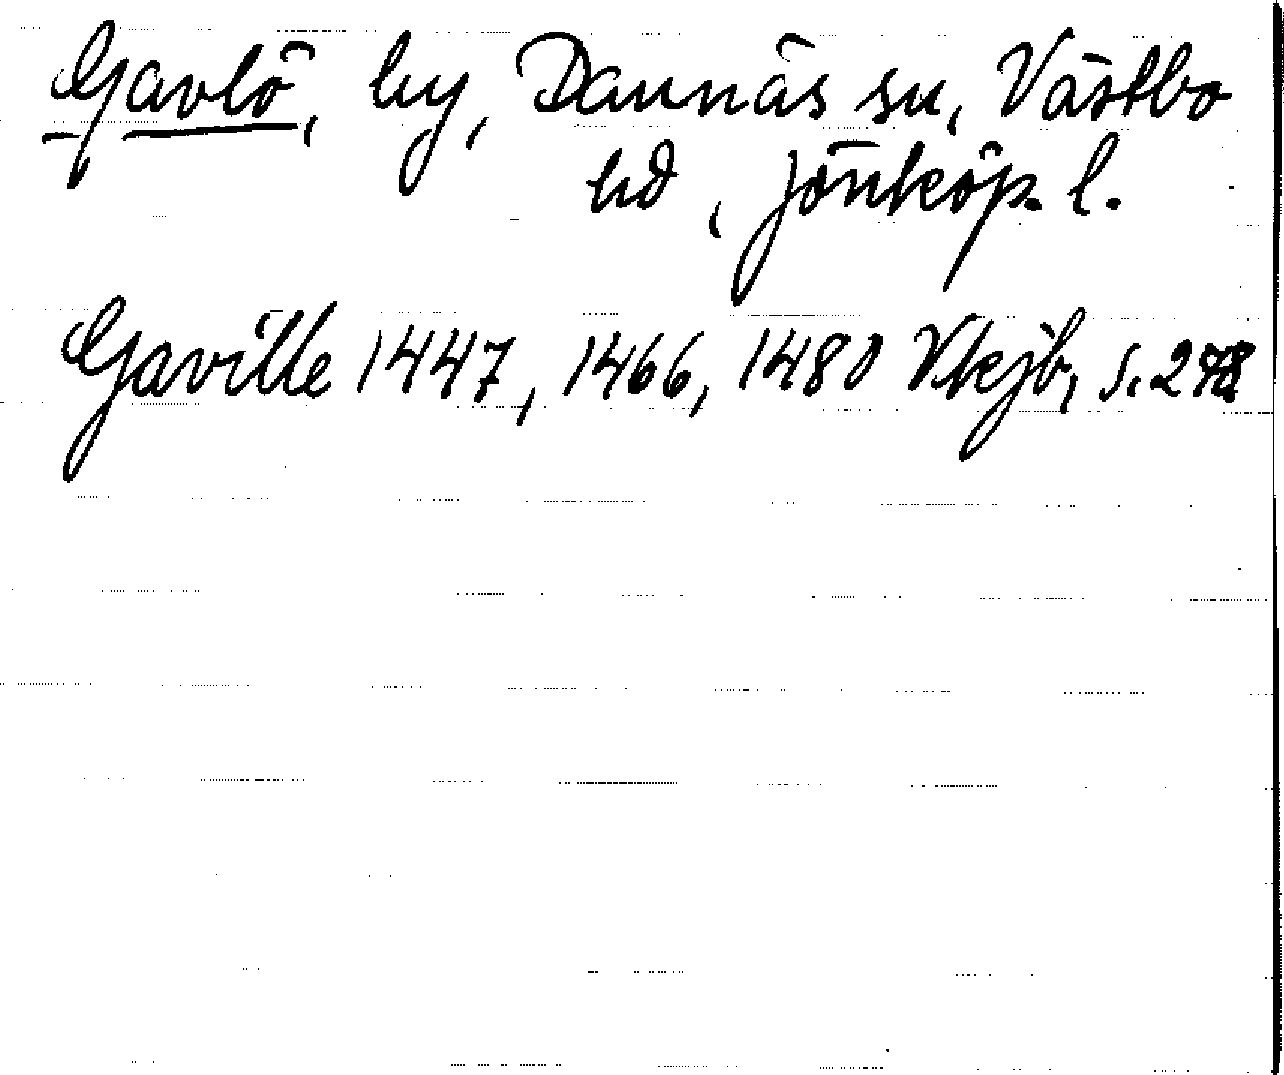 Gavlö, by, Dannäs sn, Västbo
hd, Jönköp. l.
Gaville 1447, 1466, 1480 Vkjb, s. 278